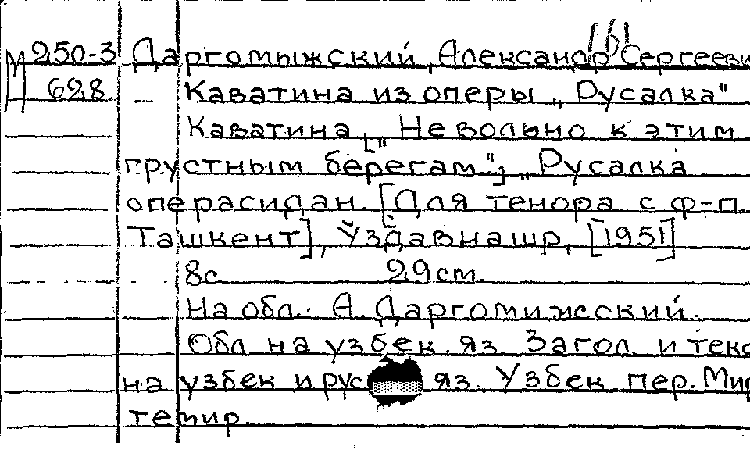 М 250-3 Даргомыжский, Александр Сергееви
628 – Каватина из оперы „Русалка"
Каватина ["Невольно к этим
грустным берегам"], „Русалка
операсидан. [Для тенора с ф-п.
Ташкент], Ўздавнашр, [1951]
8с. 29см.
На обл.: А. Даргомижский.
Обл. на узбек. яз. Загол. и текс
на узбек и рус яз. Узбек пер. Мир
темир